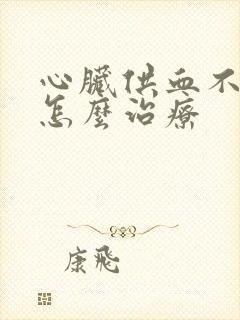 心臟供血不
怎麼治療
康飛